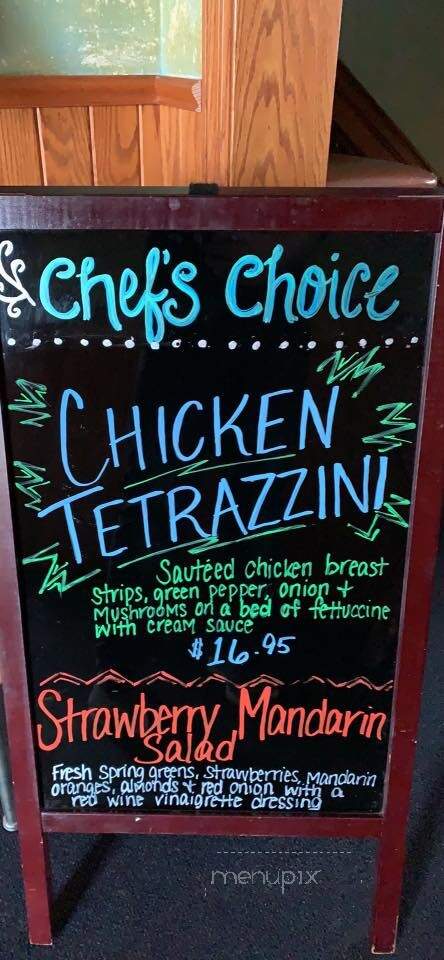 Chef's Choice
CHICKEN
TETRAZZINI
Sautéed chicken breast
strips, green pepper, onion +
Mushrooms on a bed of fettuccine
with cream sauce
$16.95
Strawberry Mandarin
Salad
Fresh spring greens, strawberries, Mandarin
oranges, almonds + red onion with a
red wine vinaigrette dressing
menupix